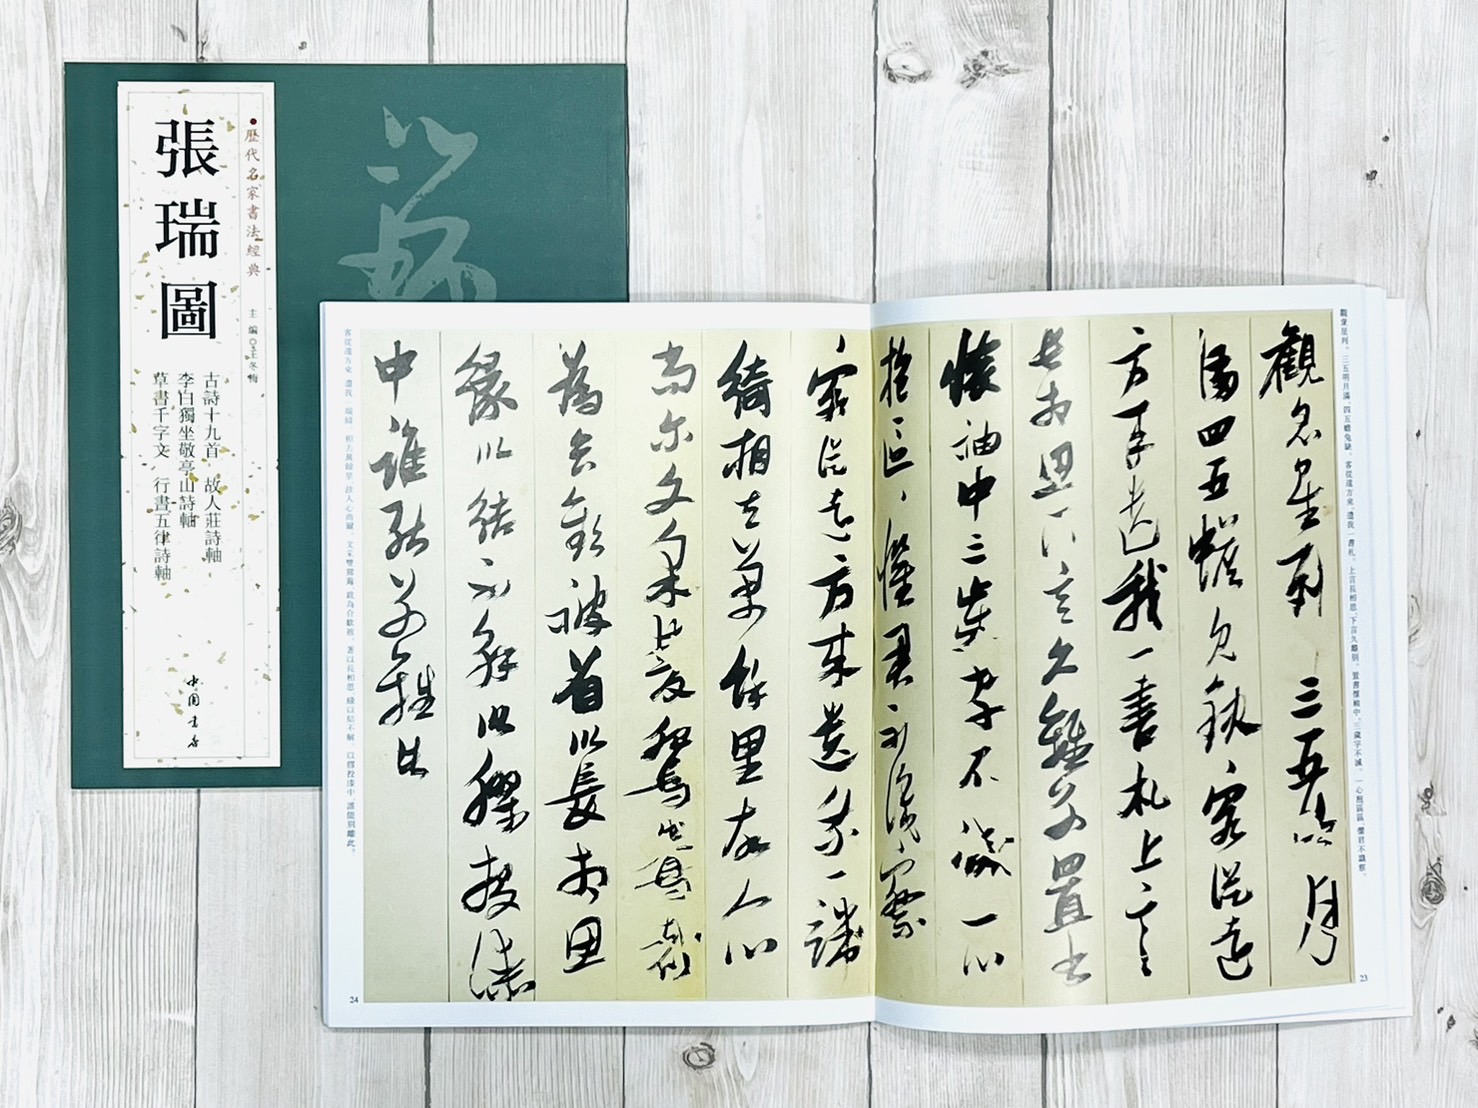 歷代名家書法經典　主編○王冬梅
張瑞圖
古詩十九首　故人莊詩軸
李白獨坐敬亭山詩軸
草書千字文　行書五律詩軸
中国書店
觀眾星列。三五明月滿，四五蟾兔缺。客從遠方來，遺我一書札。上言長相思，下言久離別。置書懷袖中，三歲字不滅。一心抱區區，懼君不識察。
觀眾星列三五明月
滿四五蟾兔缺客從遠
方來遺我一書札上言
長相思下言久離別置書
懷袖中三歲字不滅一心
抱區區懼君不識察
23
客從遠方來遺我一端
綺相去萬餘里故人心
尚尔文采雙鴛鴦裁
為合歡被着以長相思
緣以結不解以膠投漆
中誰能別離此
客從遠方來，遺我一端綺。相去萬餘里，故人心尚爾。文采雙鴛鴦，裁為合歡被。著以長相思，緣以結不解。以膠投漆中，誰能別離此。
24